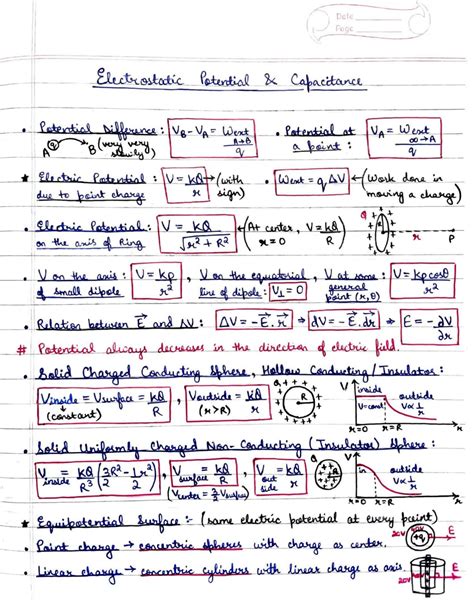 Date
Page
Electrostatic Potential & Capacitance
• Potential Difference: V_B - V_A = W_ext A→B / q • Potential at a point: V_A = W_ext ∞→A / q
A q B (very very slowly)
★ Electric Potential: due to point charge V = kQ/r → (with sign) • W_ext = qΔV ← (Work done in moving a charge)
• Electric Potential: on the axis of Ring V = kQ/√(r² + R²) ← (At center, r = 0 V = kQ/R) Q R r P
• V on the axis of small dipole: V = kp/r², V on the equatorial line of dipole: V⊥ = 0, V at some general point (r, θ): V = kp cosθ/r²
• Relation between E⃗ and ΔV: ΔV = -E⃗.r⃗ ⇒ dV = -E⃗.dr⃗ ⇒ E = -dV/dr
# Potential always decreases in the direction of electric field.
• Solid Charged Conducting Sphere, Hollow Conducting/Insulator:
V_inside = V_surface = kQ/R (constant), V_outside (r>R) = kQ/r Q R V inside V=const outside V∝1/r r=0 r=R
• Solid Uniformly Charged Non-Conducting (Insulator) Sphere:
V_inside = kQ/R³ (3R²/2 - 1r²/2), V_surface = kQ/R (V_center = 3/2 V_surface), V_outside = kQ/r Q R V in outside V∝1/r r=0 r=R
★ Equipotential Surface :- (same electric potential at every point)
• Point charge → concentric spheres with charge as center. 20V +q E
• Linear charge → concentric cylinders with linear charge as axis. 20V E